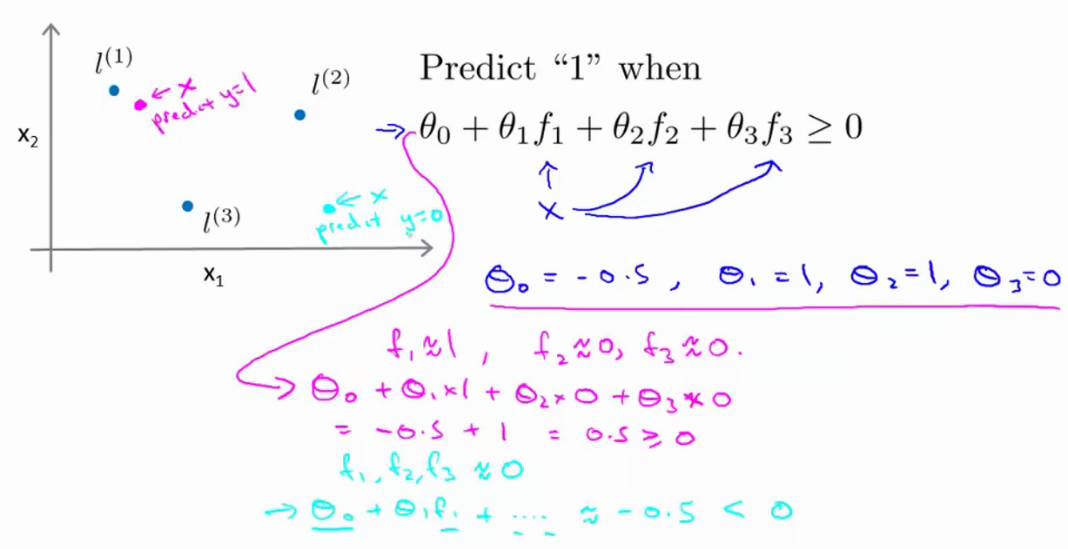 l⁽¹⁾
← x
predict y=1
l⁽²⁾
x₂
l⁽³⁾
← x
predict y=0
x₁
Predict “1” when
→ θ₀ + θ₁f₁ + θ₂f₂ + θ₃f₃ ≥ 0
↑
x
θ₀ = -0.5, θ₁ = 1, θ₂ = 1, θ₃ = 0
f₁ ≈ 1, f₂ ≈ 0, f₃ ≈ 0.
→ θ₀ + θ₁ × 1 + θ₂ × 0 + θ₃ × 0
= -0.5 + 1 = 0.5 ≥ 0
f₁, f₂, f₃ ≈ 0
→ θ₀ + θ₁f₁ + .... ≈ -0.5 < 0